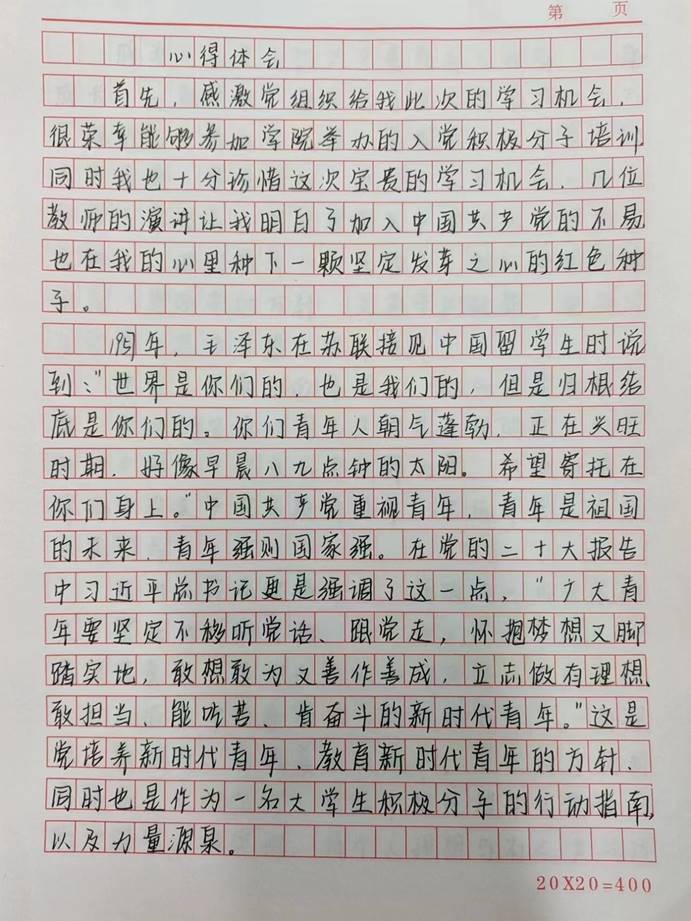 第 页
心得体会
首先，感激党组织给我此次的学习机会，
很荣幸能够参加学院举办的入党积极分子培训
同时我也十分珍惜这次宝贵的学习机会，几位
教师的演讲让我明白了加入中国共产党的不易
也在我的心里种下一颗坚定发芽之心的红色种
子。
1957年，毛泽东在苏联接见中国留学生时说
到："世界是你们的，也是我们的，但是归根结
底是你们的。你们青年人朝气蓬勃，正在兴旺
时期，好像早晨八九点钟的太阳。希望寄托在
你们身上。"中国共产党重视青年，青年是祖国
的未来，青年强则国家强。在党的二十大报告
中习近平总书记更是强调了这一点，"广大青
年要坚定不移听党话、跟党走，怀抱梦想又脚
踏实地，敢想敢为又善作善成，立志做有理想、
敢担当、能吃苦、肯奋斗的新时代青年。"这是
党培养新时代青年、教育新时代青年的方针，
同时也是作为一名大学生积极分子的行动指南，
以及力量源泉。
20X20=400